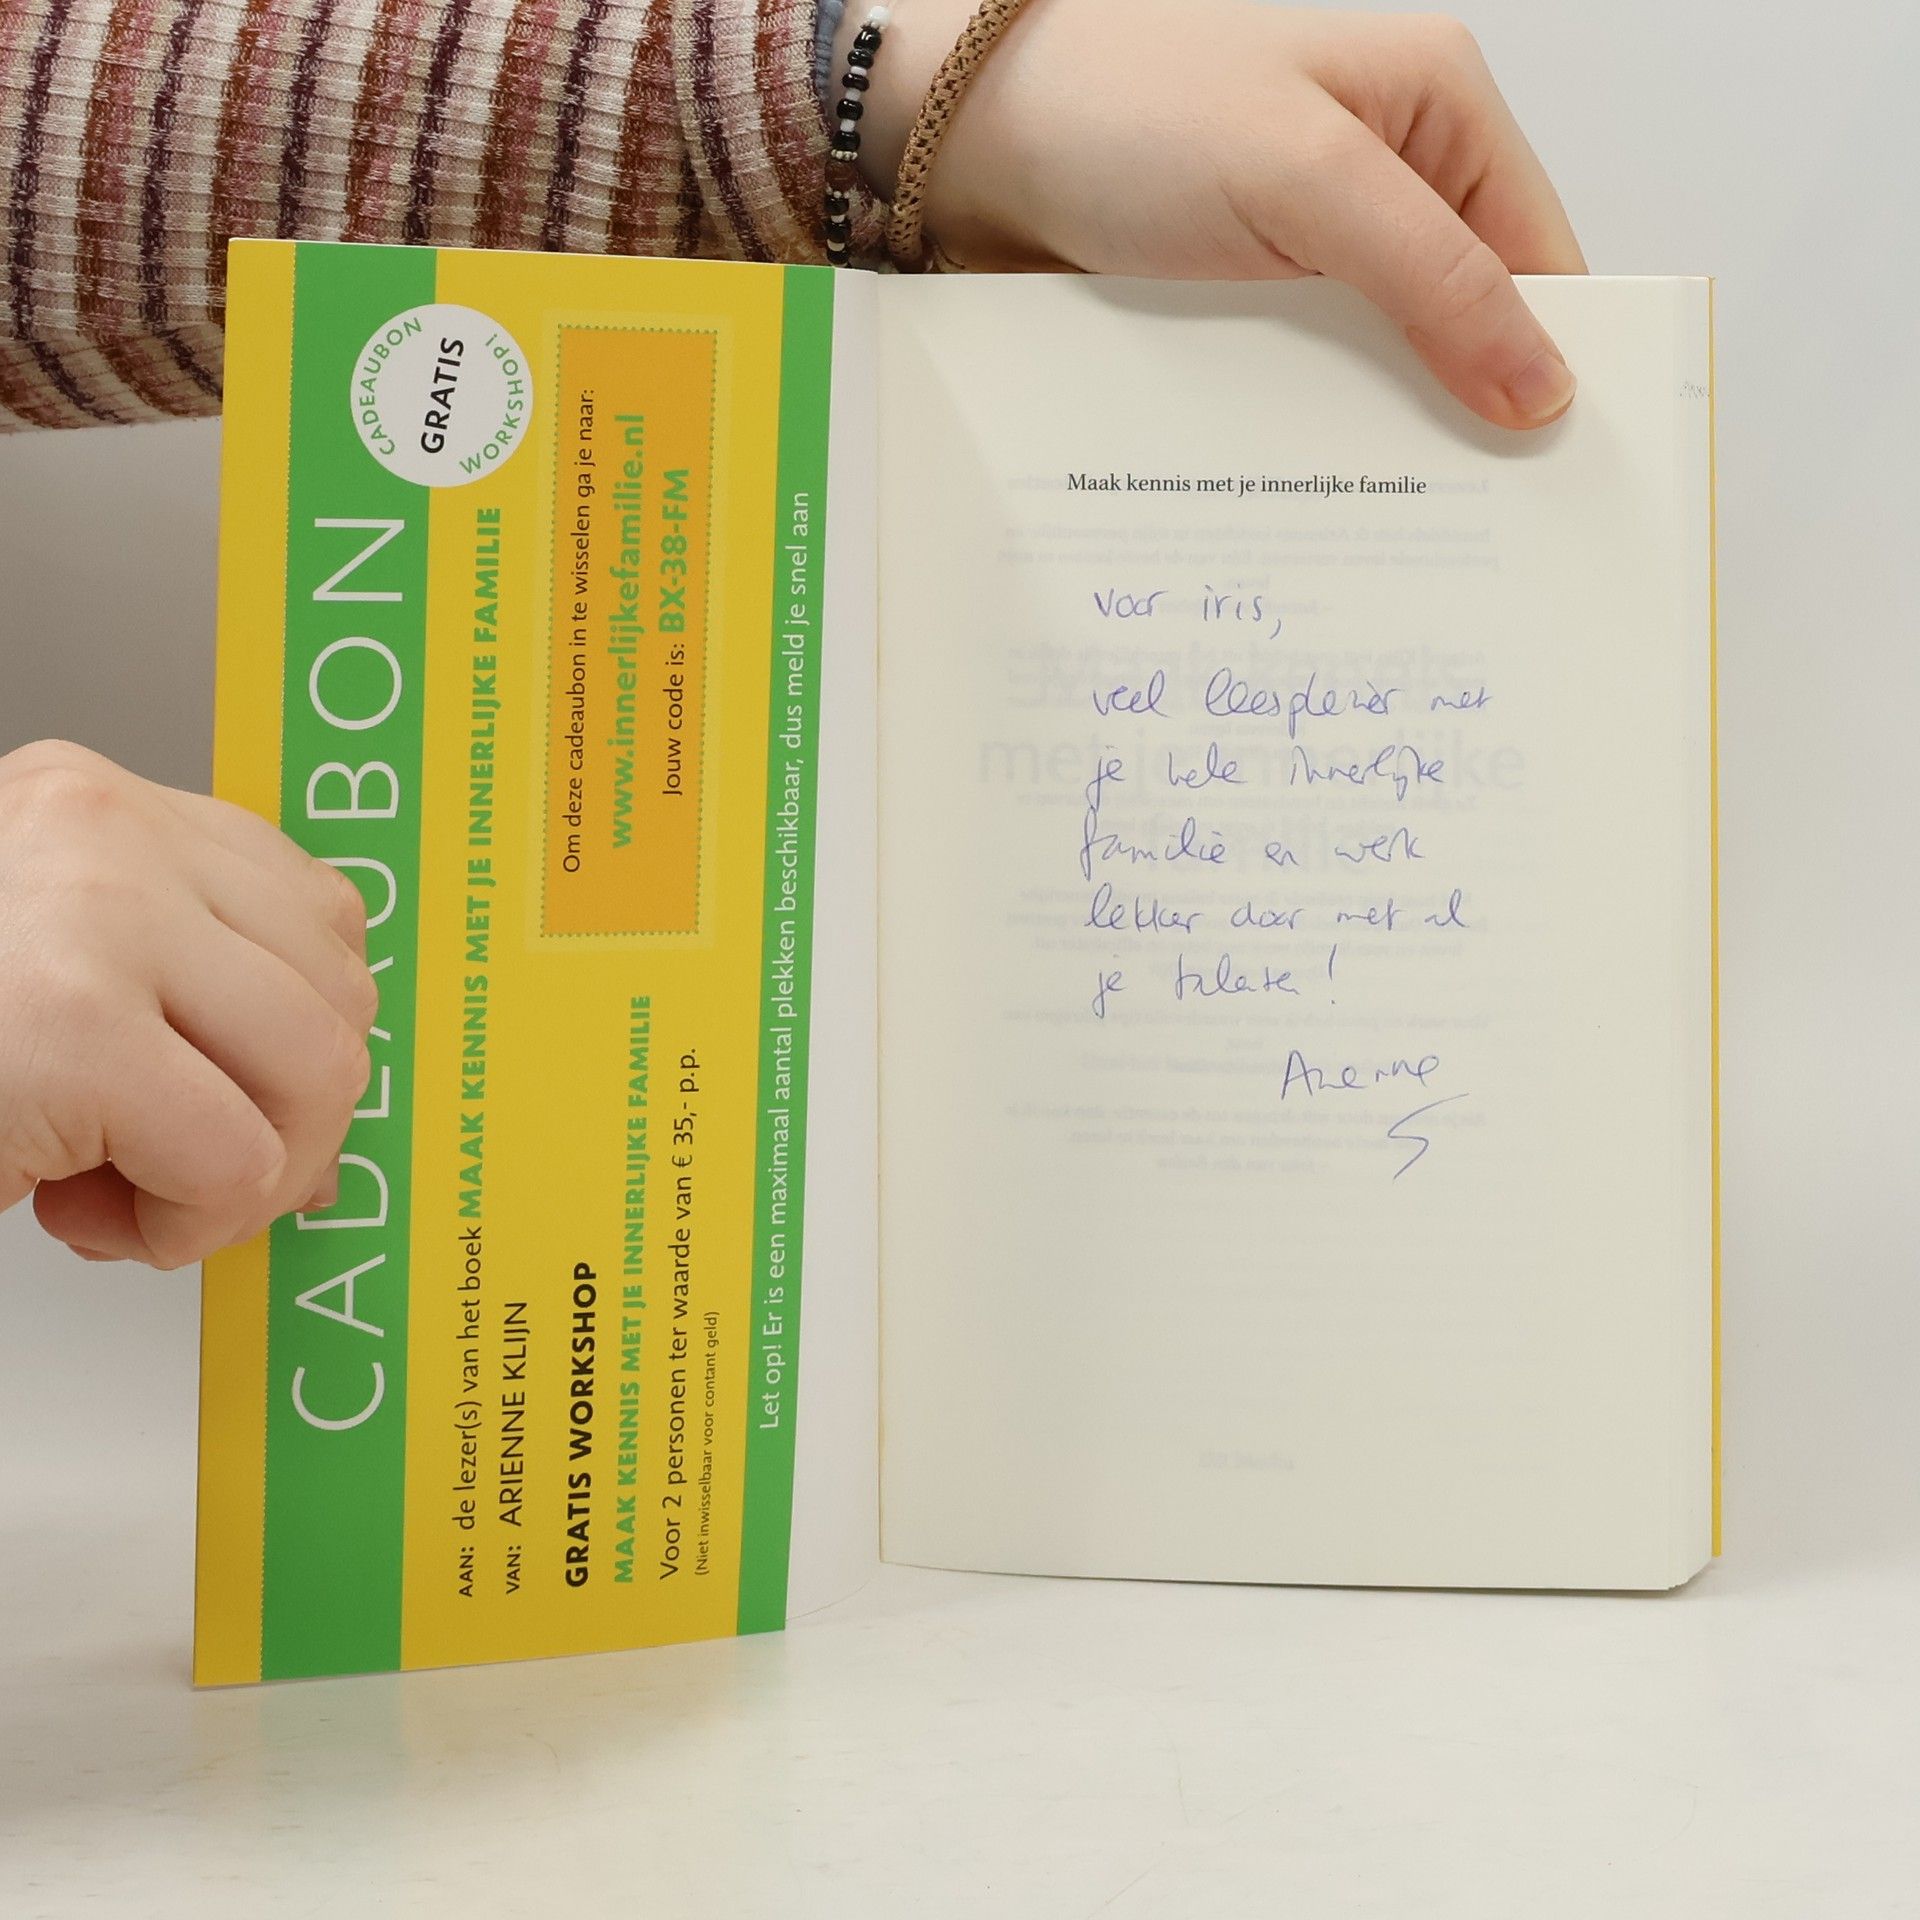 CADEAUBON
CADEAUBON
GRATIS
WORKSHOP!
AAN: de lezer(s) van het boek MAAK KENNIS MET JE INNERLIJKE FAMILIE
VAN: ARIENNE KLIJN
GRATIS WORKSHOP
MAAK KENNIS MET JE INNERLIJKE FAMILIE
Voor 2 personen ter waarde van € 35,- p.p.
(Niet inwisselbaar voor contant geld)
Om deze cadeaubon in te wisselen ga je naar:
www.innerlijkefamilie.nl
Jouw code is: BX-38-FM
Let op! Er is een maximaal aantal plekken beschikbaar, dus meld je snel aan
Maak kennis met je innerlijke familie
voor iris,
veel leesplezier met
je hele innerlijke
familie en werk
lekker door met al
je talenten!
Arienne